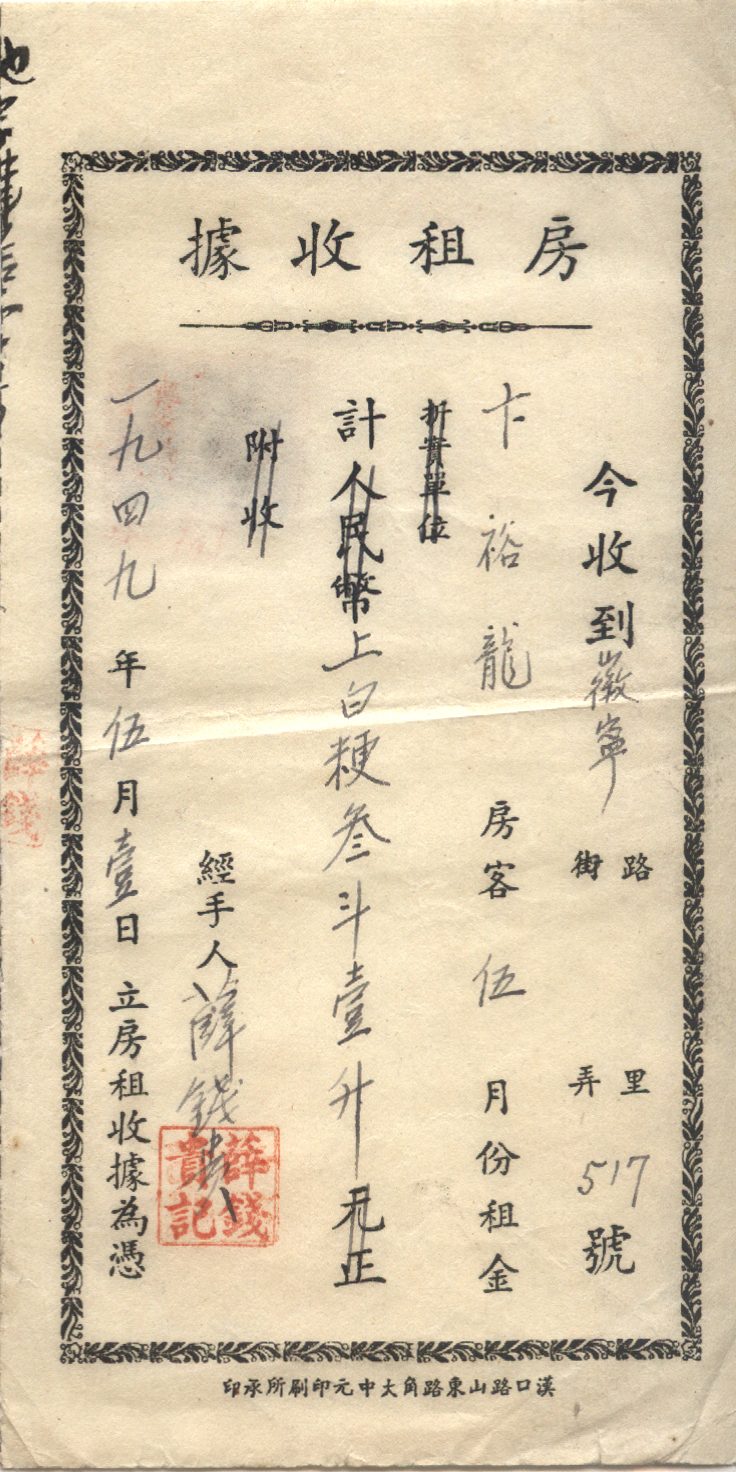 房租收據
今收到徽寧
路
街
里
弄
517號
卞裕龍房客伍月份租金
折實單位
計人民幣上白粳叁斗壹升元正
附收
經手人薛錢貴
薛錢貴記
一九四九年伍月壹日立房租收據為憑
薛錢
漢口路山東路角大中元印刷所承印